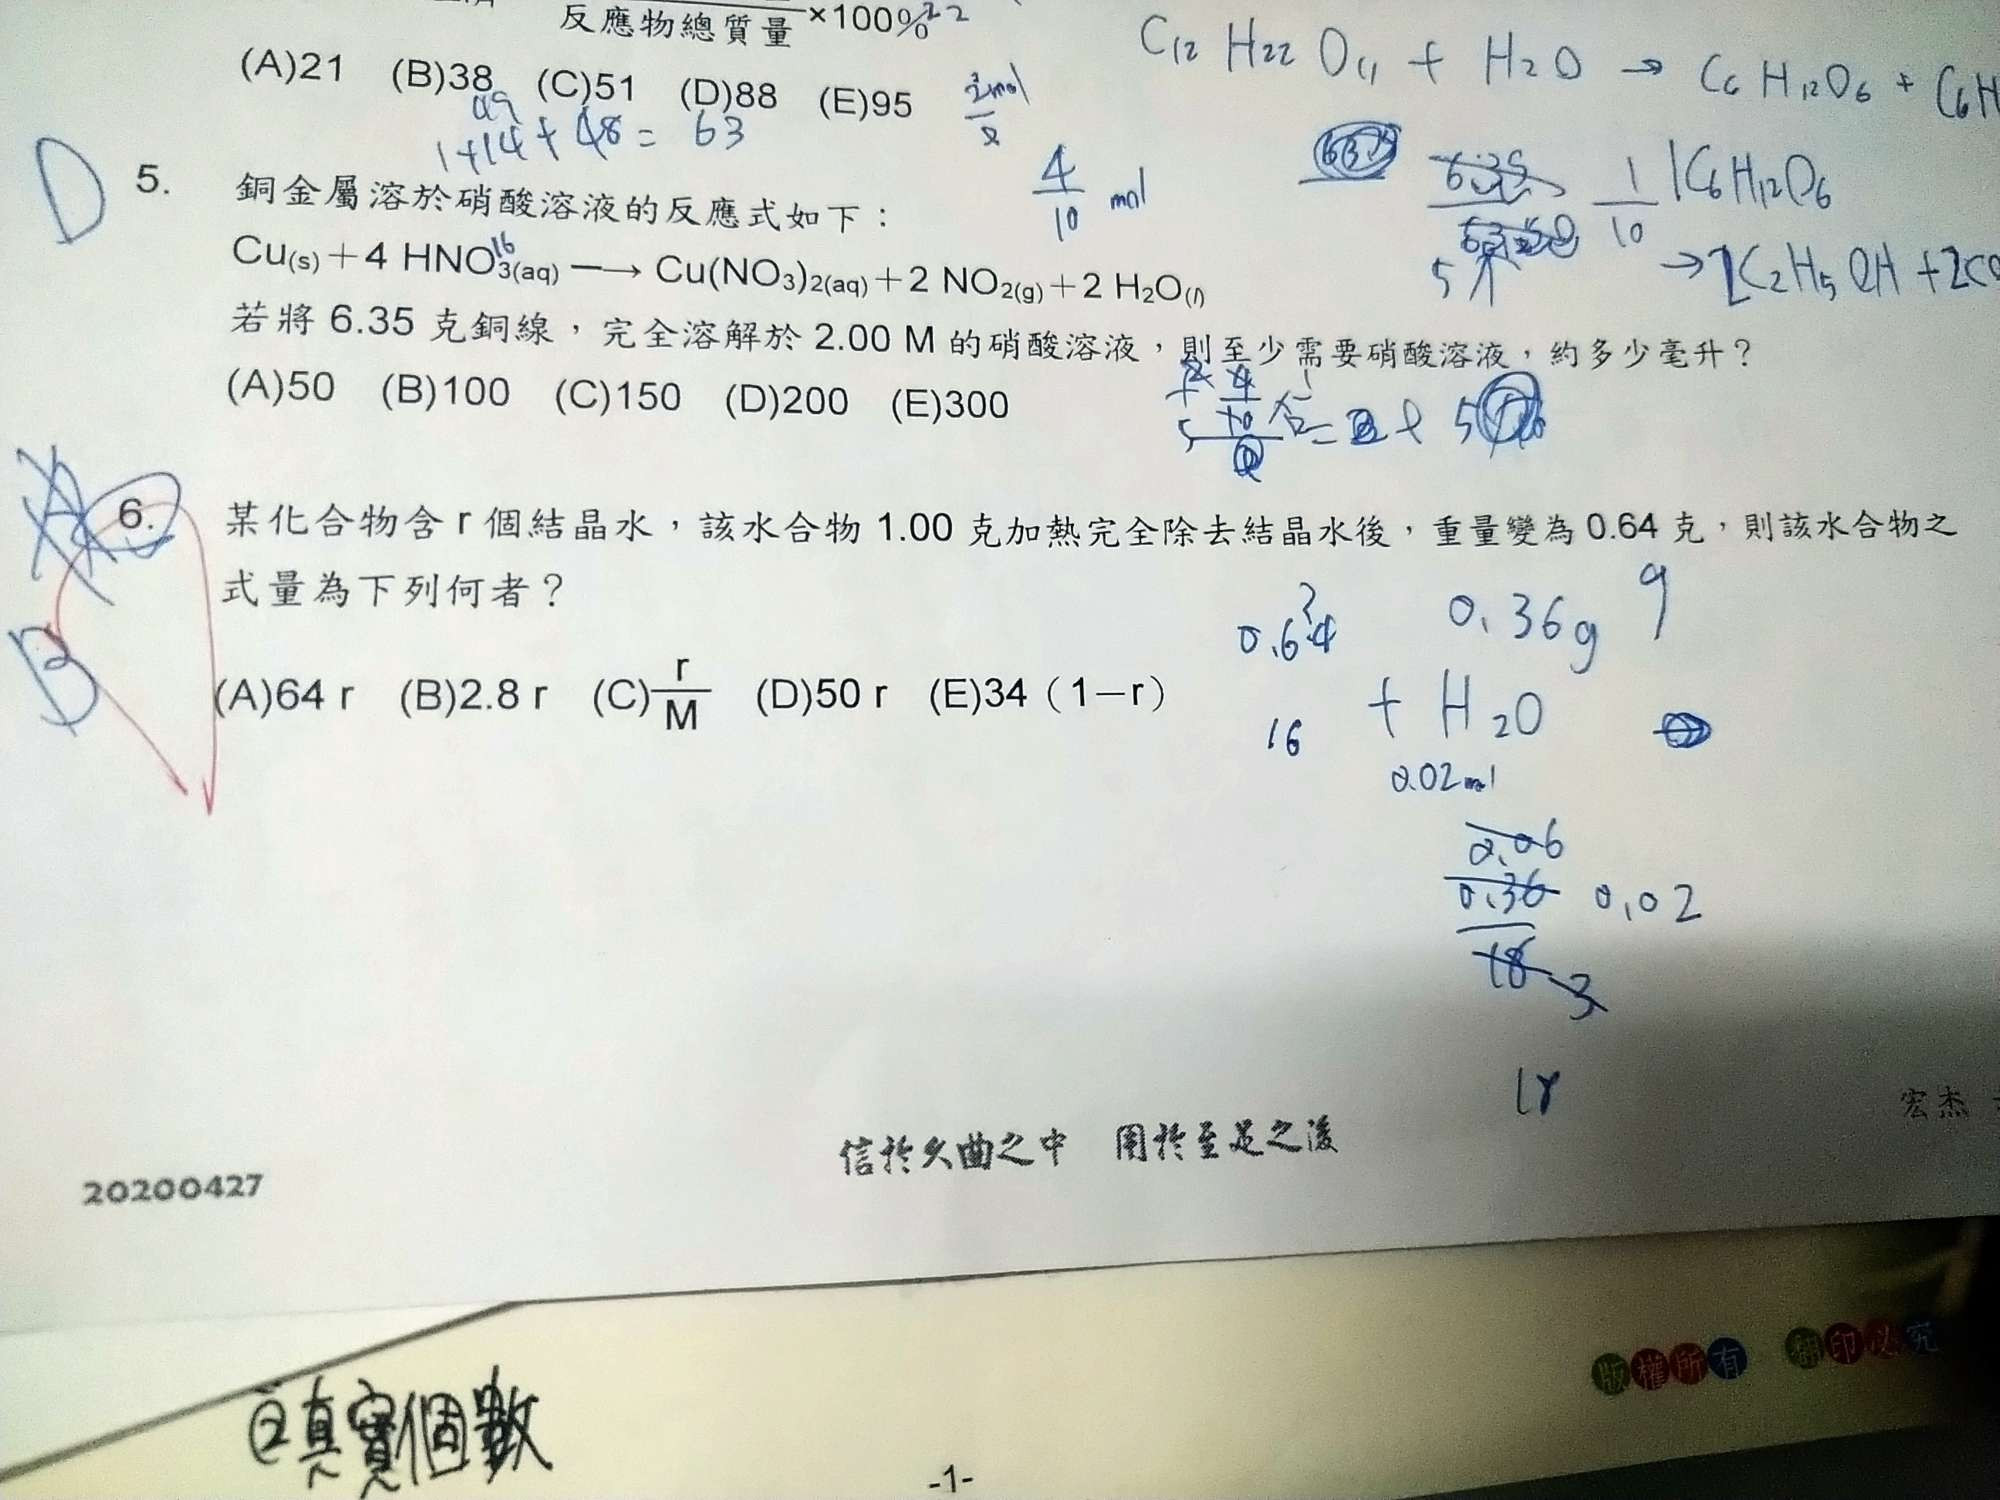 反應物總質量 ×100%
(A)21 (B)38 (C)51 (D)88 (E)95
C12 H22 O11 + H2O → C6 H12O6 + C6H
1+14+48= 63
4/10 mol
D
5. 銅金屬溶於硝酸溶液的反應式如下：
1/10
1C6H12O6
→2C2H5OH+2CO
16
Cu(s)+4 HNO3(aq) ─→ Cu(NO3)2(aq)+2 NO2(g)+2 H2O(l)
若將 6.35 克銅線，完全溶解於 2.00 M 的硝酸溶液，則至少需要硝酸溶液，約多少毫升？
(A)50 (B)100 (C)150 (D)200 (E)300
6. 某化合物含 r 個結晶水，該水合物 1.00 克加熱完全除去結晶水後，重量變為 0.64 克，則該水合物之
式量為下列何者？
0.64
0.36g
B
(A)64 r (B)2.8 r (C) r/M (D)50 r (E)34（1－r）
16
+ H2O
0.02mol
0.06
0.36 0.02
18 3
信於久曲之中 用於至足之後
宏杰
20200427
版權所有 翻印必究
②真實個數
-1-